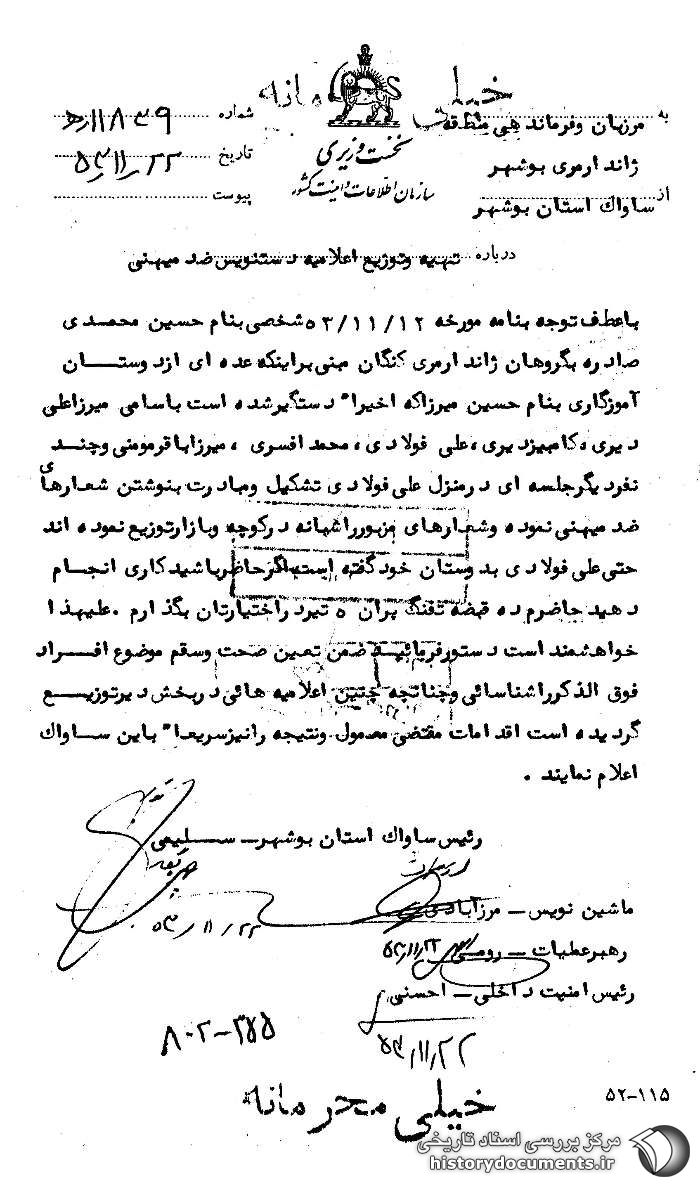 خیلی محرمانه
به مرزبان وفرماندهی منطقه
ژاندارمری بوشهر
از ساواك استان بوشهر
نخست وزیری
سازمان اطلاعات و امنیت کشور
شماره ۱۱۸۳۹/ه‍
تاریخ ۵۳/۱۱/۲۲
پیوست
درباره تهیه وتوزیع اعلامیه دستنویس ضد میهنی
باعطف توجه بنامه مورخه ۵۳/۱۱/۱۲ شخصی بنام حسین محمدی
صادره بگروهان ژاندارمری كنگان مبنی براینكه عده ای ازدوستان
آموزگاری بنام حسین میرزاكه اخیرا" دستگیرشده است باسامی میرزاعلی
دیری، كامبیزدیری، علی فولادی، محمد افسری ، میرزاباقرمومنی وچند
نفردیگرجلسه ای درمنزل علی فولادی تشكیل ومبادرت بنوشتن شعارهای
ضد میهنی نموده وشعارهای مزبورراشبانه دركوچه وبازارتوزیع نموده اند
حتی علی فولادی بدوستان خودگفته است اگرحاضرباشیدكاری انجام
دهید حاضرم ده قبضه تفنگ بران ۵ تیردراختیارتان بگذارم .علیهذا
خواهشمند است دستورفرمائید ضمن تعین صحت وسقم موضوع افراد
فوق الذكرراشناسائی وچنانچه چنین اعلامیه هائی دربخش دیرتوزیع
گردیده است اقدامات مقتضی معمول ونتیجه رانیزسریعا" باین ساواك
اعلام نمایند .
رئیس ساواك استان بوشهر– سلیمی
۵۳/۱۱/۲۲
ماشین نویس – مرزآبادی
رهبرعملیات – رومی ۵۳/۱۱/۲۲
رئیس امنیت داخلی – احسنی
۵۳/۱۱/۲۲
۸۰۲-۳۵۵
خیلی محرمانه
۵۲-۱۱۵
مرکز بررسی اسناد تاریخی
historydocuments.ir